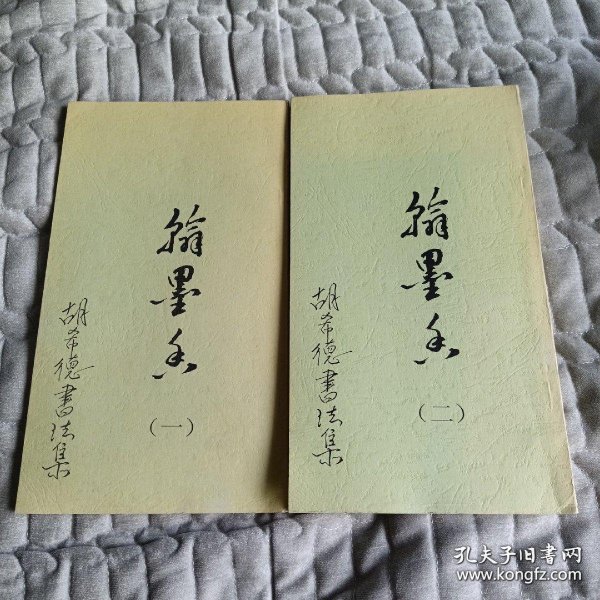 翰墨香
(一)
胡希德書法集
翰墨香
(二)
胡希德書法集
孔夫子旧書网
www.kongfz.com